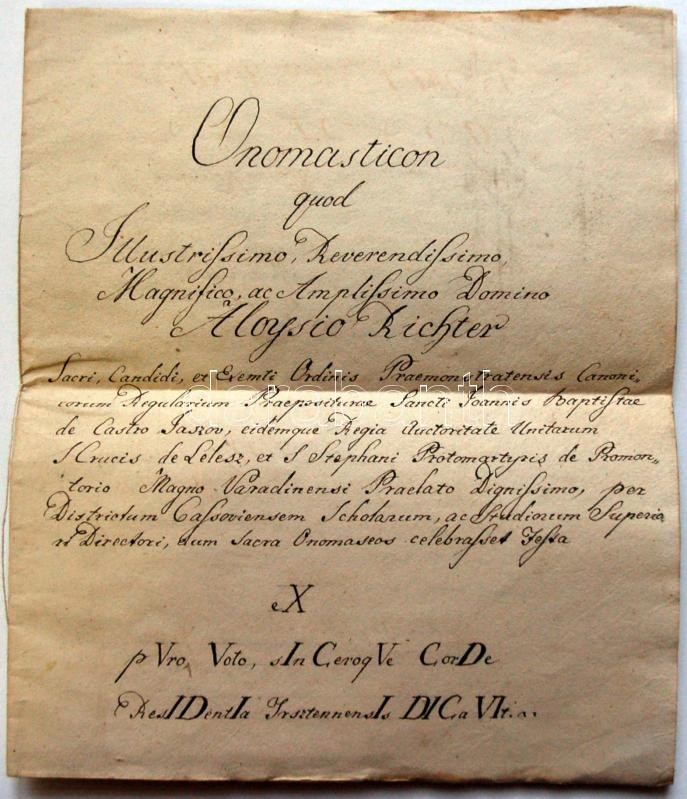 Onomasticon
quod
Illustrissimo, Reverendissimo,
Magnifico, ac Amplissimo Domino
Aloysio Richter
Sacri, Candidi, et Exemti Ordinis Praemonstratensis Canoni-
corum Regularium Praepositurae Sancti Joannis Baptistae
de Castro Jaszov, eidemque Regia Auctoritate Unitarum
S Crucis de Lelesz, et S Stephani Protomartyris de Promon-
torio Magno Varadinensi Praelato Dignissimo, per
Districtum Cassoviensem Scholarum, ac Studiorum Superio
rŭ Directori, cum Sacra Onomaseos celebrasset Festa
eX
pVro, Voto, sInCeroqVe CorDe
ResIDentIa Jrsztennensis DICaVIt.